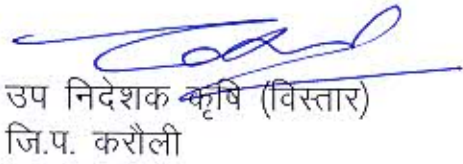 उप निदेशक कृषि (विस्तार)
जि.प. करौली